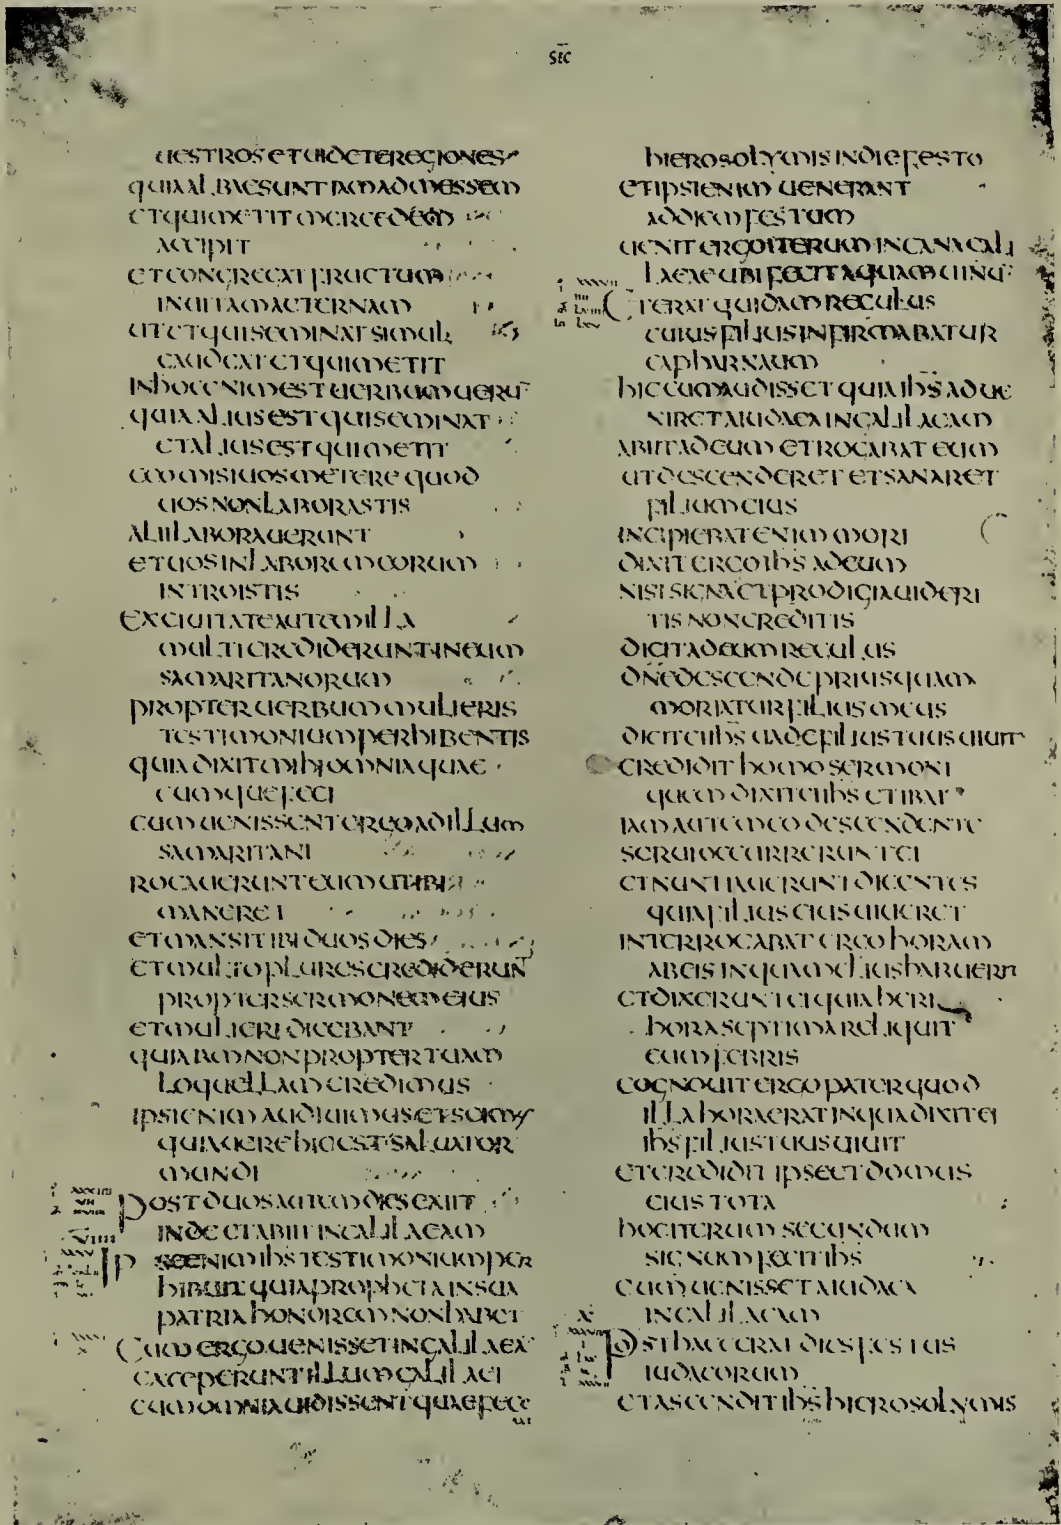 SEC
UESTROS ET UIDETE REGIONES
QUIA ALBAE SUNT IAM AD MESSEM
ET QUI METIT MERCEDEM
ACCIPIT
ET CONGREGAT FRUCTUM
IN UITAM AETERNAM
UT ET QUI SEMINAT SIMUL
GAUDEAT ET QUI METIT
IN HOC ENIM EST UERBUM UERU
QUIA ALIUS EST QUI SEMINAT
ET ALIUS EST QUI METIT
EGO MISI UOS METERE QUOD
UOS NON LABORASTIS
ALII LABORAUERUNT
ET UOS IN LABOREM EORUM
INTROISTIS
EX CIUITATE AUTEM ILLA
MULTI CREDIDERUNT IN EUM
SAMARITANORUM
PROPTER UERBUM MULIERIS
TESTIMONIUM PERHIBENTIS
QUIA DIXIT MIHI OMNIA QUAE
CUMQUE FECI
CUM UENISSENT ERGO AD ILLUM
SAMARITANI
ROGAUERUNT EUM UT IBI
MANERET
ET MANSIT IBI DUOS DIES
ET MULTO PLURES CREDIDERUNT
PROPTER SERMONEM EIUS
ET MULIERI DICEBANT
QUIA IAM NON PROPTER TUAM
LOQUELLAM CREDIMUS
IPSI ENIM AUDIUIMUS ET SCIMUS
QUIA UERE HIC EST SALUATOR
MUNDI
POST DUOS AUTEM DIES EXIIT
INDE ET ABIIT IN GALILAEAM
IPSE ENIM IHS TESTIMONIUM PER
HIBUIT QUIA PROPHETA IN SUA
PATRIA HONOREM NON HABET
CUM ERGO UENISSET IN GALILAEA
EXCEPERUNT ILLUM GALILAEI
CUM OMNIA UIDISSENT QUAE FECE
HIEROSOLYMIS IN DIE FESTO
ET IPSI ENIM UENERANT
AD DIEM FESTUM
UENIT ERGO ITERUM IN CANA GALI
LAEAE UBI FECIT AQUAM UINU
ERAT QUIDAM REGULUS
CUIUS FILIUS INFIRMABATUR
CAPHARNAUM
HIC CUM AUDISSET QUIA IHS ADUE
NIRET A IUDAEA IN GALILAEAM
ABIIT AD EUM ET ROGABAT EUM
UT DESCENDERET ET SANARET
FILIUM EIUS
INCIPIEBAT ENIM MORI
DIXIT ERGO IHS AD EUM
NISI SIGNA ET PRODIGIA UIDERI
TIS NON CREDITIS
DICIT AD EUM REGULUS
DNE DESCENDE PRIUS QUAM
MORIATUR FILIUS MEUS
DICIT EI IHS UADE FILIUS TUUS UIUIT
CREDIDIT HOMO SERMONI
QUEM DIXIT EI IHS ET IBAT
IAM AUTEM EO DESCENDENTE
SERUI OCCURRERUNT EI
ET NUNTIAUERUNT DICENTES
QUIA FILIUS EIUS UIUERET
INTERROGABAT ERGO HORAM
AB EIS IN QUA MELIUS HABUERIT
ET DIXERUNT EI QUIA HERI
HORA SEPTIMA RELIQUIT
EUM FEBRIS
COGNOUIT ERGO PATER QUOD
ILLA HORA ERAT IN QUA DIXIT EI
IHS FILIUS TUUS UIUIT
ET CREDIDIT IPSE ET DOMUS
EIUS TOTA
HOC ITERUM SECUNDUM
SIGNUM FECIT IHS
CUM UENISSET A IUDAEA
IN GALILAEAM
POST HAEC ERAT DIES FESTUS
IUDAEORUM
ET ASCENDIT IHS HIEROSOLYMIS